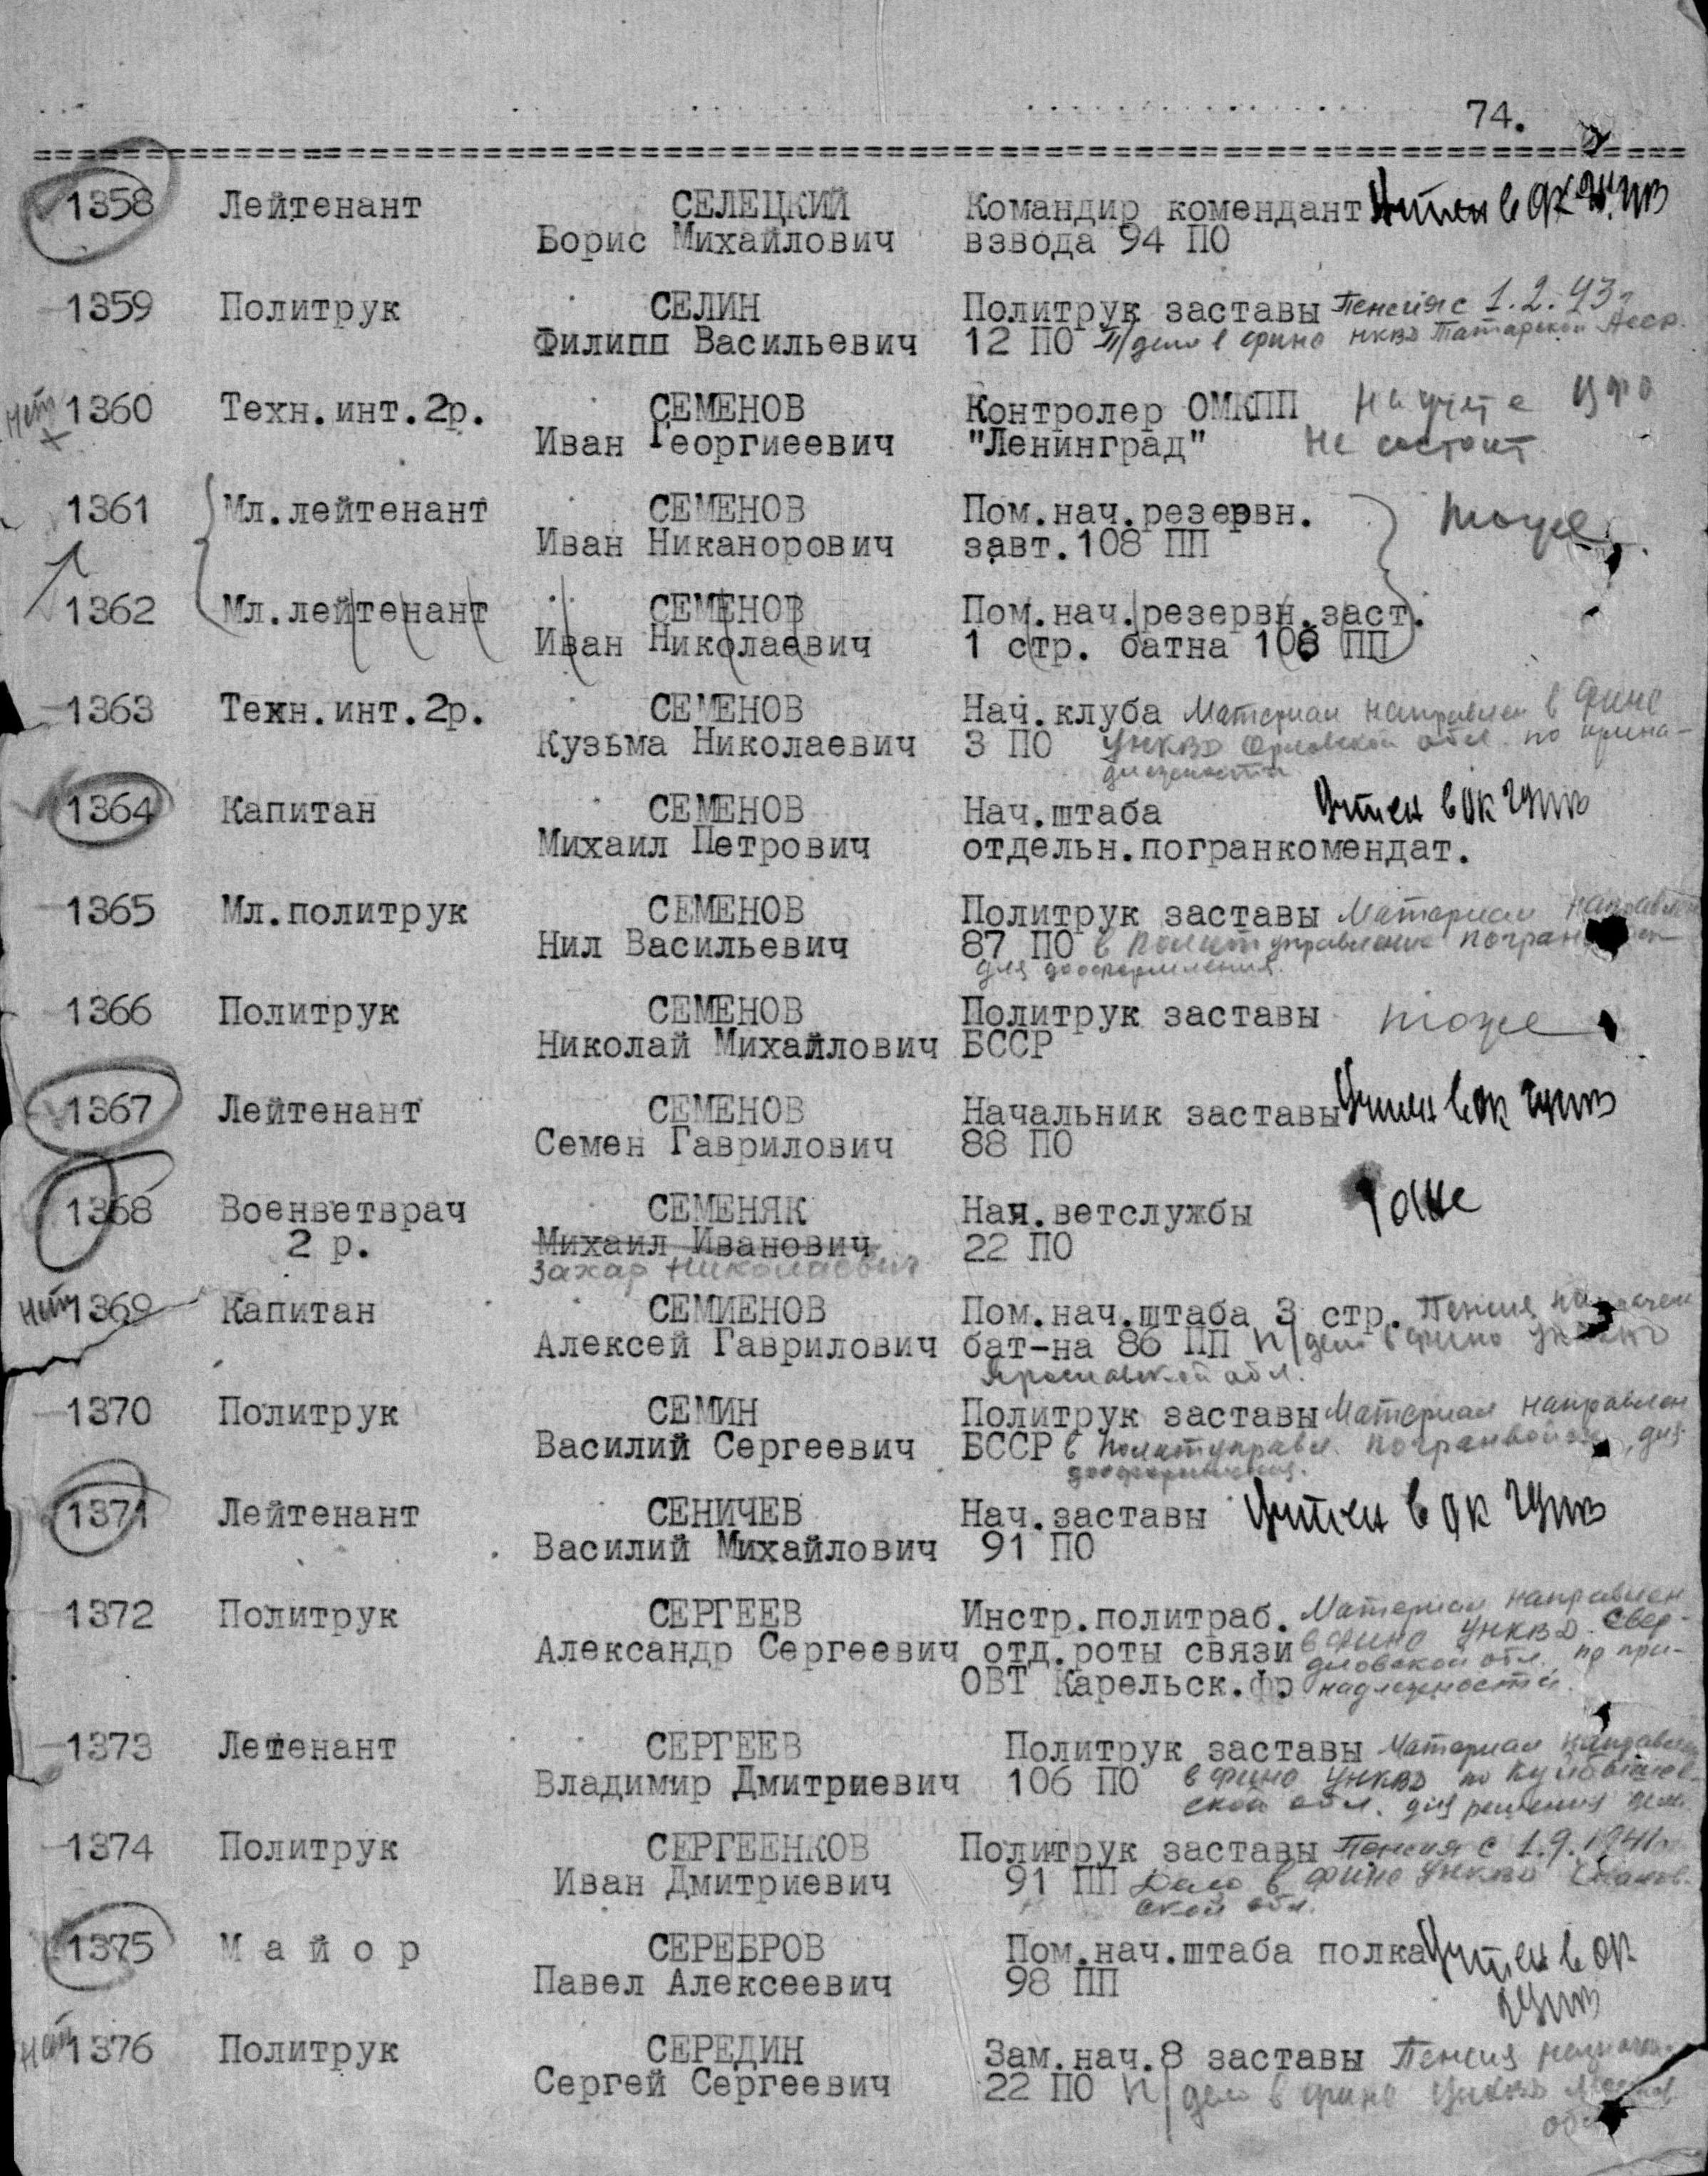 74.
1358 Лейтенант СЕЛЕЦКИЙ Командир комендант Учтен в ОК ГУПВ
Борис Михайлович взвода 94 ПО
1359 Политрук СЕЛИН Политрук заставы Пенсия с 1.2.43г
Филипп Васильевич 12 ПО П/дело в фино НКВД Татарской Асср.
нет 1360 Техн.инт.2р. СЕМЕНОВ Контролер ОМКПП На учете ЦФО
Иван Георгиеевич "Ленинград" не состоит
1361 Мл.лейтенант СЕМЕНОВ Пом.нач.резервн. тоже
Иван Никанорович завт.108 ПП
1362 Мл.лейтенант СЕМЕНОВ Пом.нач.резервн.заст.
Иван Николаевич 1 стр. батна 108 ПП
1363 Техн.инт.2р. СЕМЕНОВ Нач.клуба Материал направлен в Фино
Кузьма Николаевич 3 ПО УНКВД Орловской обл. по прина-
длежности
1364 Капитан СЕМЕНОВ Нач.штаба Учтен в ОК ГУПВ
Михаил Петрович отдельн.погранкомендат.
1365 Мл.политрук СЕМЕНОВ Политрук заставы Материал направлен
Нил Васильевич 87 ПО в Политуправление
для дооформления.
1366 Политрук СЕМЕНОВ Политрук заставы тоже
Николай Михайлович БССР
1367 Лейтенант СЕМЕНОВ Начальник заставы Учтен в ОК ГУПВ
Семен Гаврилович 88 ПО
1368 Военветврач СЕМЕНЯК Нач.ветслужбы Тоже
2 р. Михаил Иванович 22 ПО
Захар Николаевич
нет 1369 Капитан СЕМИЕНОВ Пом.нач.штаба 3 стр. Пенсия
Алексей Гаврилович бат-на 86 ПП п/дело в фино
Ярославской обл.
1370 Политрук СЕМИН Политрук заставы Материал направлен
Василий Сергеевич БССР в политуправл. погранвойск, для
дооформления.
1371 Лейтенант СЕНИЧЕВ Нач.заставы Учтен в ОК ГУПВ
Василий Михайлович 91 ПО
1372 Политрук СЕРГЕЕВ Инстр.политраб. Материал направлен
Александр Сергеевич отд.роты связи в Фино УНКВД Свер-
дловской обл. по при-
ОВТ Карельск.фр надлежности.
1373 Летенант СЕРГЕЕВ Политрук заставы Материал направлен
Владимир Дмитриевич 106 ПО в Фино УНКВД по Куйбышев-
ской обл. для решения дела
1374 Политрук СЕРГЕЕНКОВ Политрук заставы Пенсия с 1.9.1941г
Иван Дмитриевич 91 ПП Дело в Фино УНКВД
ской обл.
1375 М а й о р СЕРЕБРОВ Пом.нач.штаба полка Учтен в ОК
Павел Алексеевич 98 ПП ГУПВ
нет 1376 Политрук СЕРЕДИН Зам.нач.8 заставы Пенсия назначена
Сергей Сергеевич 22 ПО п/дело в фино УНКВД